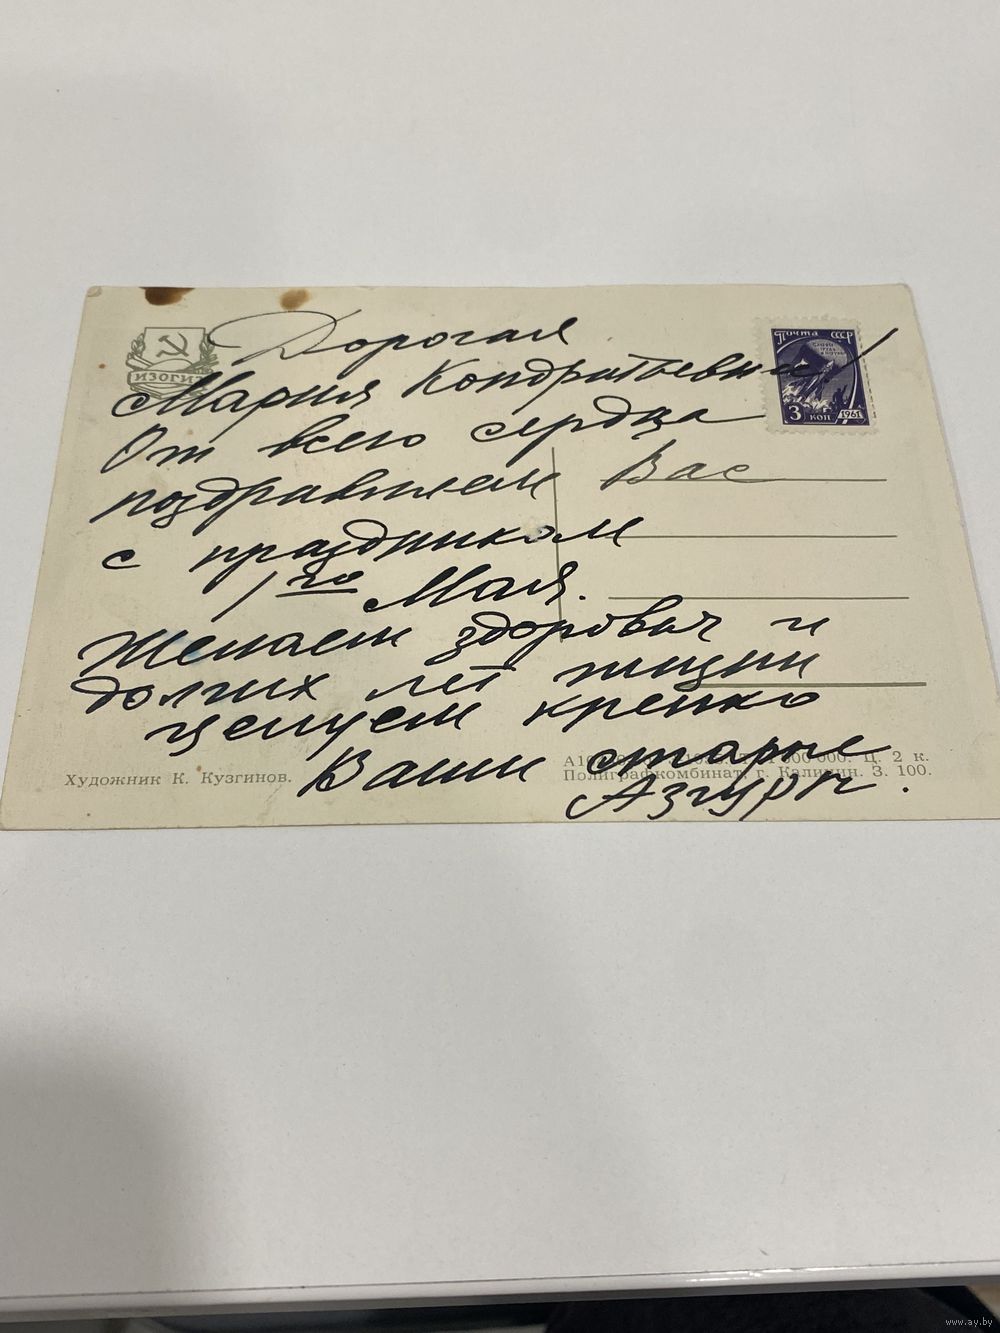 Дорогая
Мария Кондратьевна
От всего сердца
поздравляем Вас
с праздником
1го Мая.
Желаем здоровья и
долгих лет жизни
целуем крепко
Ваши старые
Азгуры.
ИЗОГИЗ
ПОЧТА СССР
3 КОП
1961
Художник К. Кузгинов.
000. Ц. 2 к.
Полиграфкомбинат, г. Калинин. З. 100.
www.ay.by